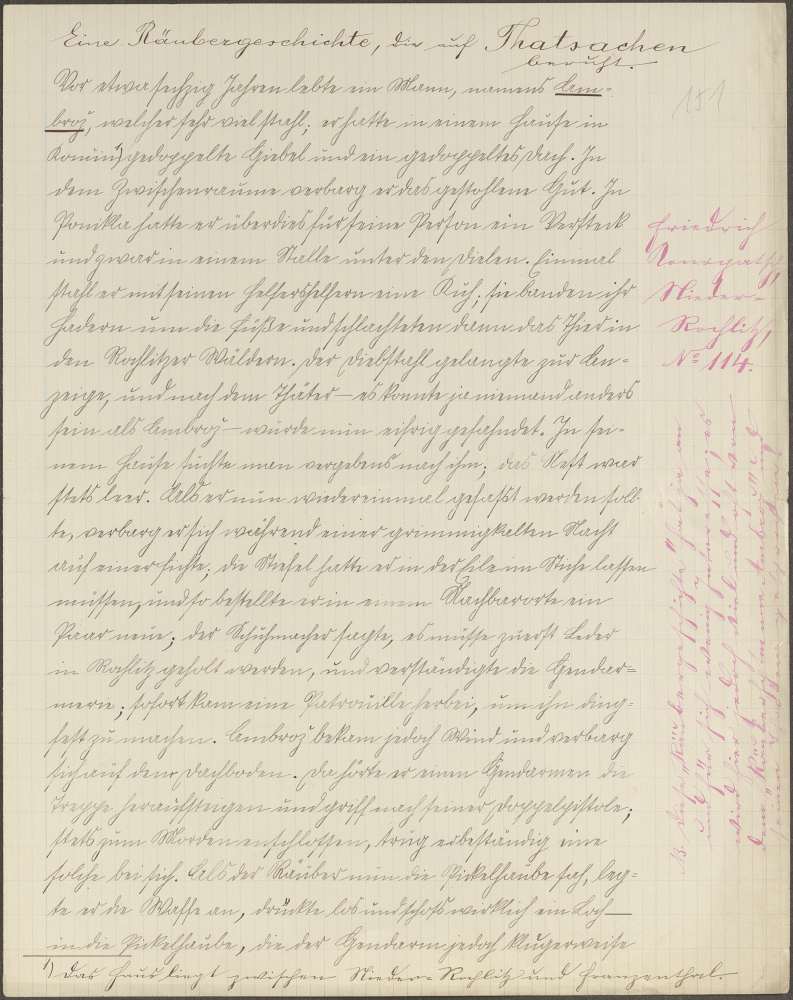 Eine Räubergeschichte, die auf Thatsachen
beruht.
Vor etwa sechzig Jahren lebte ein Mann, namens Am-
brož, welcher sehr viel stahl; er hatte in einem Hause in
1) gedoppelte Giebel und ein gedoppeltes Dach. In
dem Zwischenraume verbarg er das gestohlene Gut. In
Ponikla hatte er überdies für seine Person ein Versteck
und zwar in einem Stalle unter den Dielen. Einmal
stahl er mit seinen Helfershelfern eine Kuh; sie banden ihr
Hadern um die Füße und schlachteten dann das Thier in
den Rochlitzer Wäldern. Der Diebstahl gelangte zur An-
zeige, und nach dem Thäter – es konnte ja niemand anders
sein als Ambrož – wurde nun eifrig gefahndet. In sei-
nem Hause suchte man vergebens nach ihm; das Nest war
stets leer. Als er nun wiedereinmal gefasst werden soll-
te, verbarg er sich während einer grimmigkalten Nacht
auf einer Fichte; die Stiefel hatte er in der Eile im Stiche lassen
müssen, und so bestellte er in einem Nachbarorte ein
Paar neue; der Schuhmacher sagte, es müsse zuerst Leder
in Rochlitz geholt werden, und verständigte die Gendar-
merie; sofort kam eine Patrouille herbei, um ihn ding-
fest zu machen. Ambrož bekam jedoch Wind und verbarg
sich auf dem Dachboden. Da hörte er einen Gendarmen die
Treppe heraufsteigen und griff nach seiner Doppelpistole;
stets zum Morden entschlossen, trug er beständig eine
solche bei sich. Als der Räuber nun die Pickelhaube sah, leg-
te er die Waffe an, drückte los und schoss wirklich ein Loch
in die Pickelhaube, die der Gendarm jedoch klugerweise
1) Das Haus liegt zwischen Nieder-Rochlitz und Franzenthal.
151
Friedrich
Nieder-
Rochlitz,
No 114.
NB. Diese "Räubergeschichte" hat ja an
und für sich wenig
wird hier jedoch
dem "Räuber"